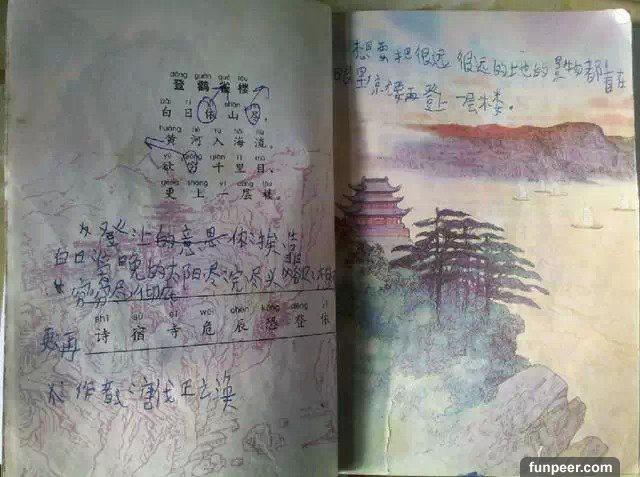 dēng guàn què lóu
登鹳雀楼
bái rì yī shān jìn
白日依山尽，
huáng hé rù hǎi liú
黄河入海流。
yù qióng qiān lǐ mù
欲穷千里目，
gèng shàng yì céng lóu
更上一层楼。
登上的意思 依挨
白日 晚的太阳尽完尽头 欲想
穷尽
shī sù sì wēi chén kǒng dēng yī
诗宿寺危辰恐登依
更再
作者 唐代王之涣
想要把很远很远的土也的景物都看在
眼里京再登上一层楼。
funpeer.com